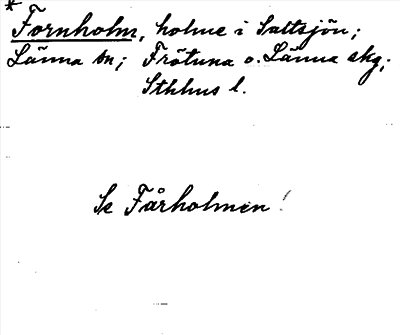 *
Fornholm, holme i Saltsjön;
Länna sn; Frötuna o. Länna skg;
Sthlms l.
Se Fårholmen!